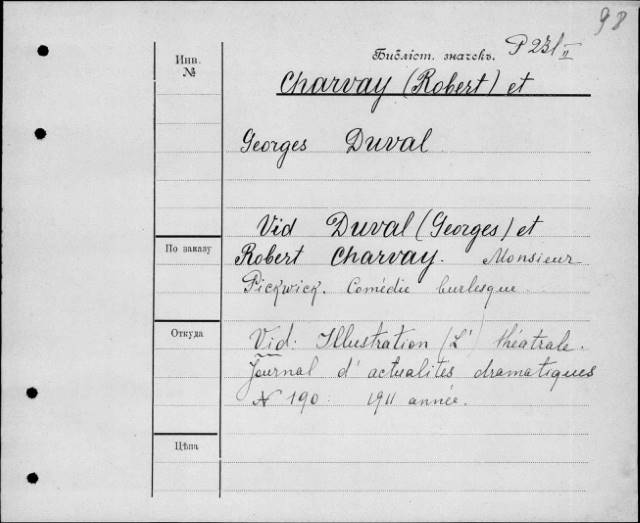 98
Инв.
№
Библіот. значекъ. P 231 II
Charvay (Robert) et
Georges Duval
Vid Duval (Georges) et
По заказу
Robert Charvay. Monsieur
Pickwick. Comédie burlesque
Откуда
Vid: Illustration (L') théatrale.
Journal d'actualités dramatiques
№ 190. 1911 année.
Цѣна